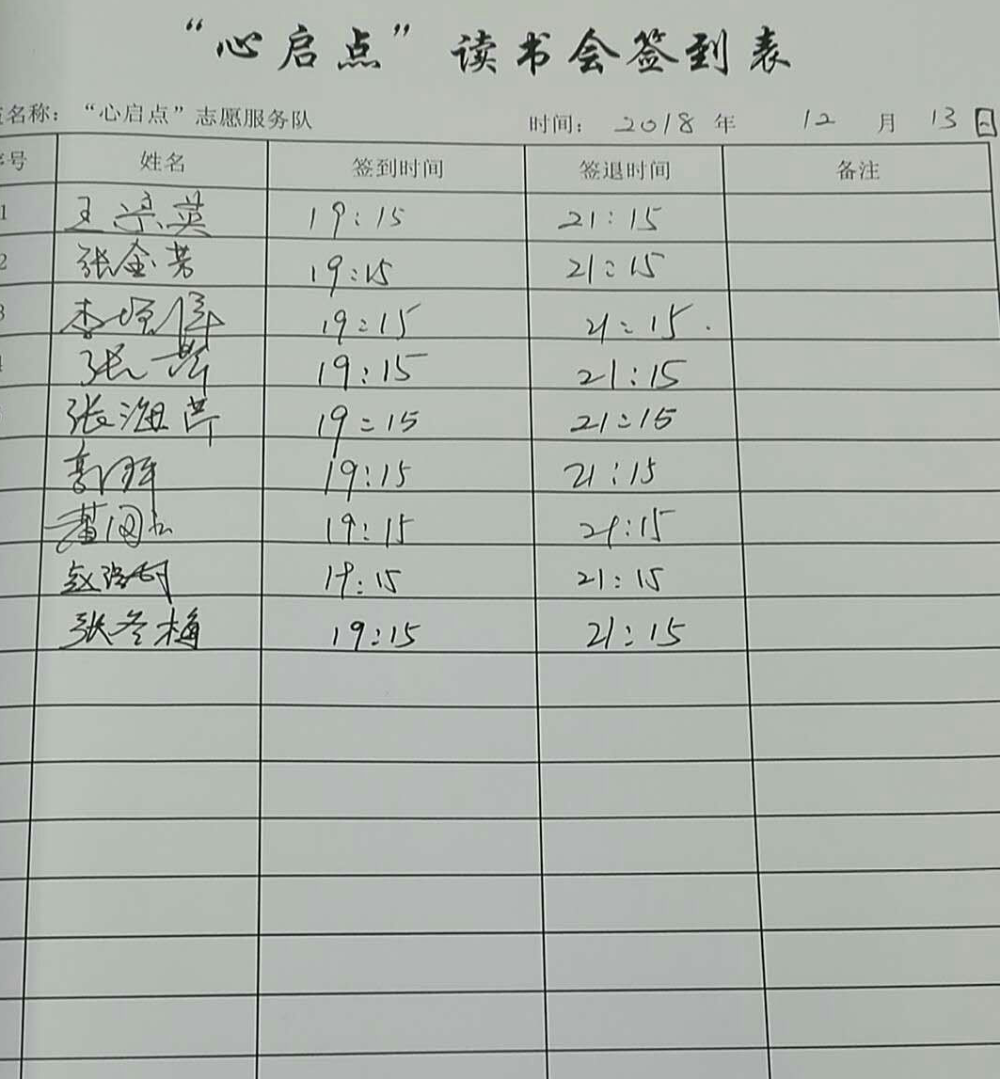 “心启点”读书会签到表
名称：“心启点”志愿服务队 时间：2018年 12月 13日
号 姓名 签到时间 签退时间 备注
1 王 英 19:15 21:15
2 张金芳 19:15 21:15
3 李 19:15 21:15.
张 19:15 21:15
张海芹 19:15 21:15
郭 19:15 21:15
董 19:15 21:15
赵 19:15 21:15
张冬梅 19:15 21:15